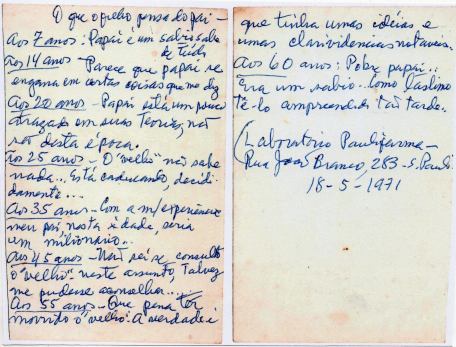 O que o filho pensa do pai -
Aos 7 anos: Papai é um sabio, sabe
de tudo
Aos 14 anos - Parece que papai se
engana em certas coisas que me diz
Aos 20 anos - Papai está um pouco
atrazado em suas Teorias, não
são desta época.
Aos 25 anos - O "velho" não sabe
nada... Está caducando, decidi-
damente...
Aos 35 anos - Com a m/ experiencia
meu pai, nesta idade, seria
um milionário...
Aos 45 anos - Não sei se consulto
o "velho" neste assunto, Talvez
me pudesse aconselhar...
Aos 55 anos - Que pena ter
morrido o "velho". A verdade é
que tinha umas idéias e
umas clarividencias notaveis.
Aos 60 anos: Pobre papai...
Era um sabio... Como lastimo
tê-lo compreendido tão tarde.
(Laboratório Paulifarma -
Rua José Branco, 283 - S. Paulo
18-5-1971